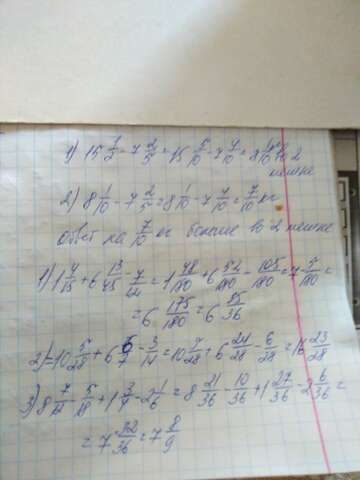 1) 15 1/2 - 7 2/5 = 15 5/10 - 7 4/10 = 8 1/10 во 2
мешке
2) 8 1/10 - 7 2/5 = 8 1/10 - 7 4/10 = 7/10 кг
ответ на 7/10 кг больше во 2 мешке
1) 1 4/15 + 6 13/45 - 7/12 = 1 48/180 + 6 52/180 - 105/180 = 7 =
= 6 175/180 = 6 35/36
2) = 10 5/28 + 6 6/7 - 3/14 = 10 5/28 + 6 24/28 - 6/28 = 16 23/28
3) 8 7/12 - 5/18 + 1 3/4 - 2 1/6 = 8 21/36 - 10/36 + 1 27/36 - 2 6/36 =
= 7 32/36 = 7 8/9